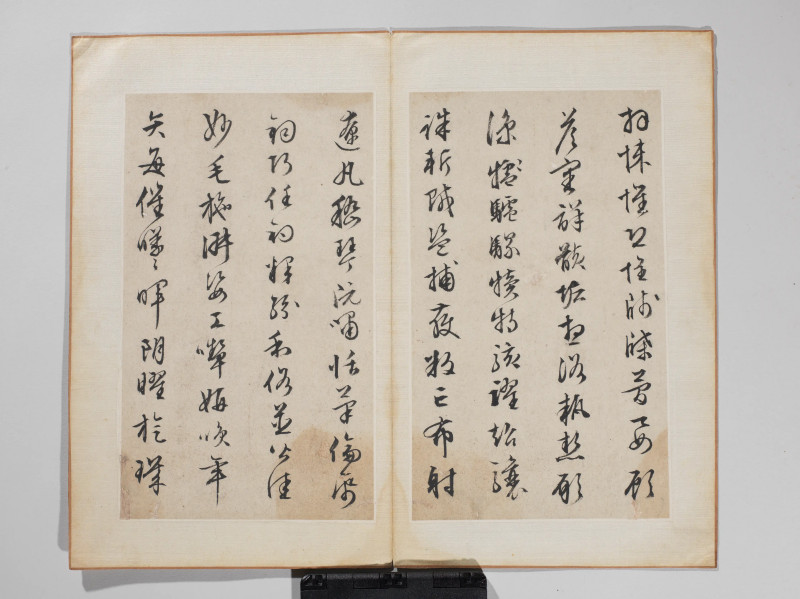 拜悚懼恐惶牋牒簡要顧
答審詳骸垢想浴執熱願
涼驢騾犢特駭躍超驤
誅斬賊盜捕獲叛亡布射
遼丸嵇琴阮嘯恬筆倫紙
鈞巧任釣釋紛利俗並皆佳
妙毛施淑姿工顰妍笑年
矢每催曦暉朗曜旋璣